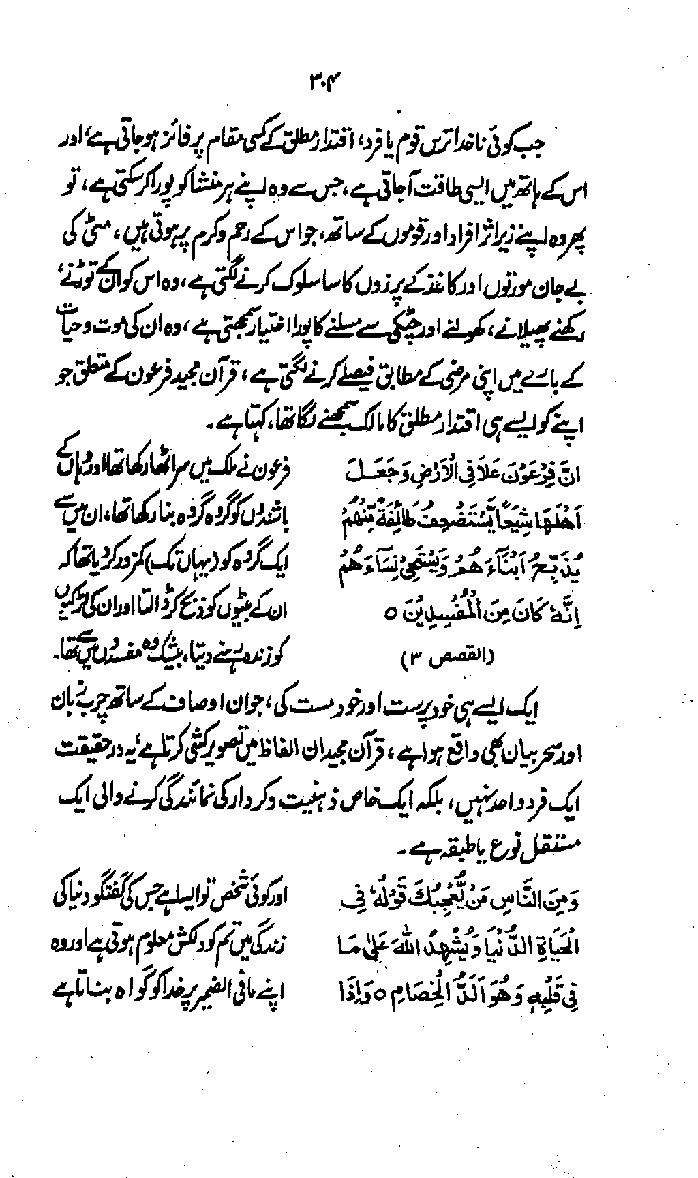 ۳۰۴
جب کوئی ناخدا ترس قوم یا فرد، اقتدار مطلق کے کسی مقام پر فائز ہوجاتی ہے، اور
اس کے ہاتھ میں ایسی طاقت آجاتی ہے، جس سے وہ اپنے ہر منشا کو پورا کرسکتی ہے، تو
پھر وہ اپنے زیر اثر افراد اور قوموں کے ساتھ، جو اس کے رحم و کرم پر ہوتی ہیں، مٹی کی
بے جان مورتوں اور کاغذ کے پرزوں کا سا سلوک کرنے لگتی ہے، وہ اس کو ان کے توڑنے،
رکھنے پھیلانے، کھولنے اور چٹکی سے مسلنے کا پورا اختیار سمجھتی ہے، وہ ان کی موت و حیات
کے بارے میں اپنی مرضی کے مطابق فیصلے کرنے لگتی ہے، قرآن مجید فرعون کے متعلق جو
اپنے کو ایسے ہی اقتدار مطلق کا مالک سمجھنے لگا تھا، کہتا ہے۔
انَّ فِرْعَوْنَ عَلَا فِی الْاَرْضِ وَجَعَلَ
اَهْلَهَا شِیَعًا یَّسْتَضْعِفُ طَائِفَةً مِّنْهُمْ
یُذَبِّحُ اَبْنَآءَ هُمْ وَیَسْتَحْیٖ نِسَآءَ هُمْ
اِنَّهٗ كَانَ مِنَ الْمُفْسِدِیْنَ ۝
(القصص ۳)
فرعون نے ملک میں سر اٹھا رکھا تھا اور وہاں کے
باشندوں کو گروہ گروہ بنا رکھا تھا، ان میں سے
ایک گروہ کو (یہاں تک) کمزور کر دیا تھا کہ
ان کے بیٹوں کو ذبح کر ڈالتا اور ان کی لڑکیوں
کو زندہ رہنے دیتا، بیشک وہ مفسدوں میں تھا۔
ایک ایسے ہی خود پرست اور خود مست کی، جو ان اوصاف کے ساتھ چرب زبان
اور سحر بیان بھی واقع ہوا ہے، قرآن مجید ان الفاظ میں تصویر کشی کرتا ہے، یہ درحقیقت
ایک فرد واحد نہیں، بلکہ ایک خاص ذہنیت و کردار کی نمائندگی کرنے والی ایک
مستقل نوع یا طبقہ ہے۔
وَمِنَ النَّاسِ مَنْ یُّعْجِبُكَ قَوْلُهٗ فِی
الْحَیَاةِ الدُّنْیَا وَیُشْهِدُ اللّٰهَ عَلٰی مَا
فِیْ قَلْبِهٖ وَهُوَ اَلَدُّ الْخِصَامِ ۝ وَاِذَا
اور کوئی شخص تو ایسا ہے جس کی گفتگو دنیا کی
زندگی میں تم کو دلکش معلوم ہوتی ہے اور وہ
اپنے مافی الضمیر پر خدا کو گواہ بناتا ہے